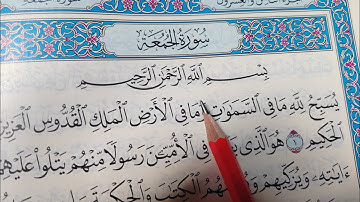 سُورَةُ الْجُمُعَةِ
بِسْمِ اللَّهِ الرَّحْمَٰنِ الرَّحِيمِ
يُسَبِّحُ لِلَّهِ مَا فِي السَّمَٰوَٰتِ وَمَا فِي الْأَرْضِ الْمَلِكِ الْقُدُّوسِ الْعَزِيزِ
الْحَكِيمِ ١ هُوَ الَّذِي فِي الْأُمِّيِّينَ رَسُولًا مِنْهُمْ يَتْلُوا عَلَيْهِمْ
آيَٰتِهِ وَيُزَكِّيهِمْ الْكِتَٰبَ وَالْحِكْمَةَ